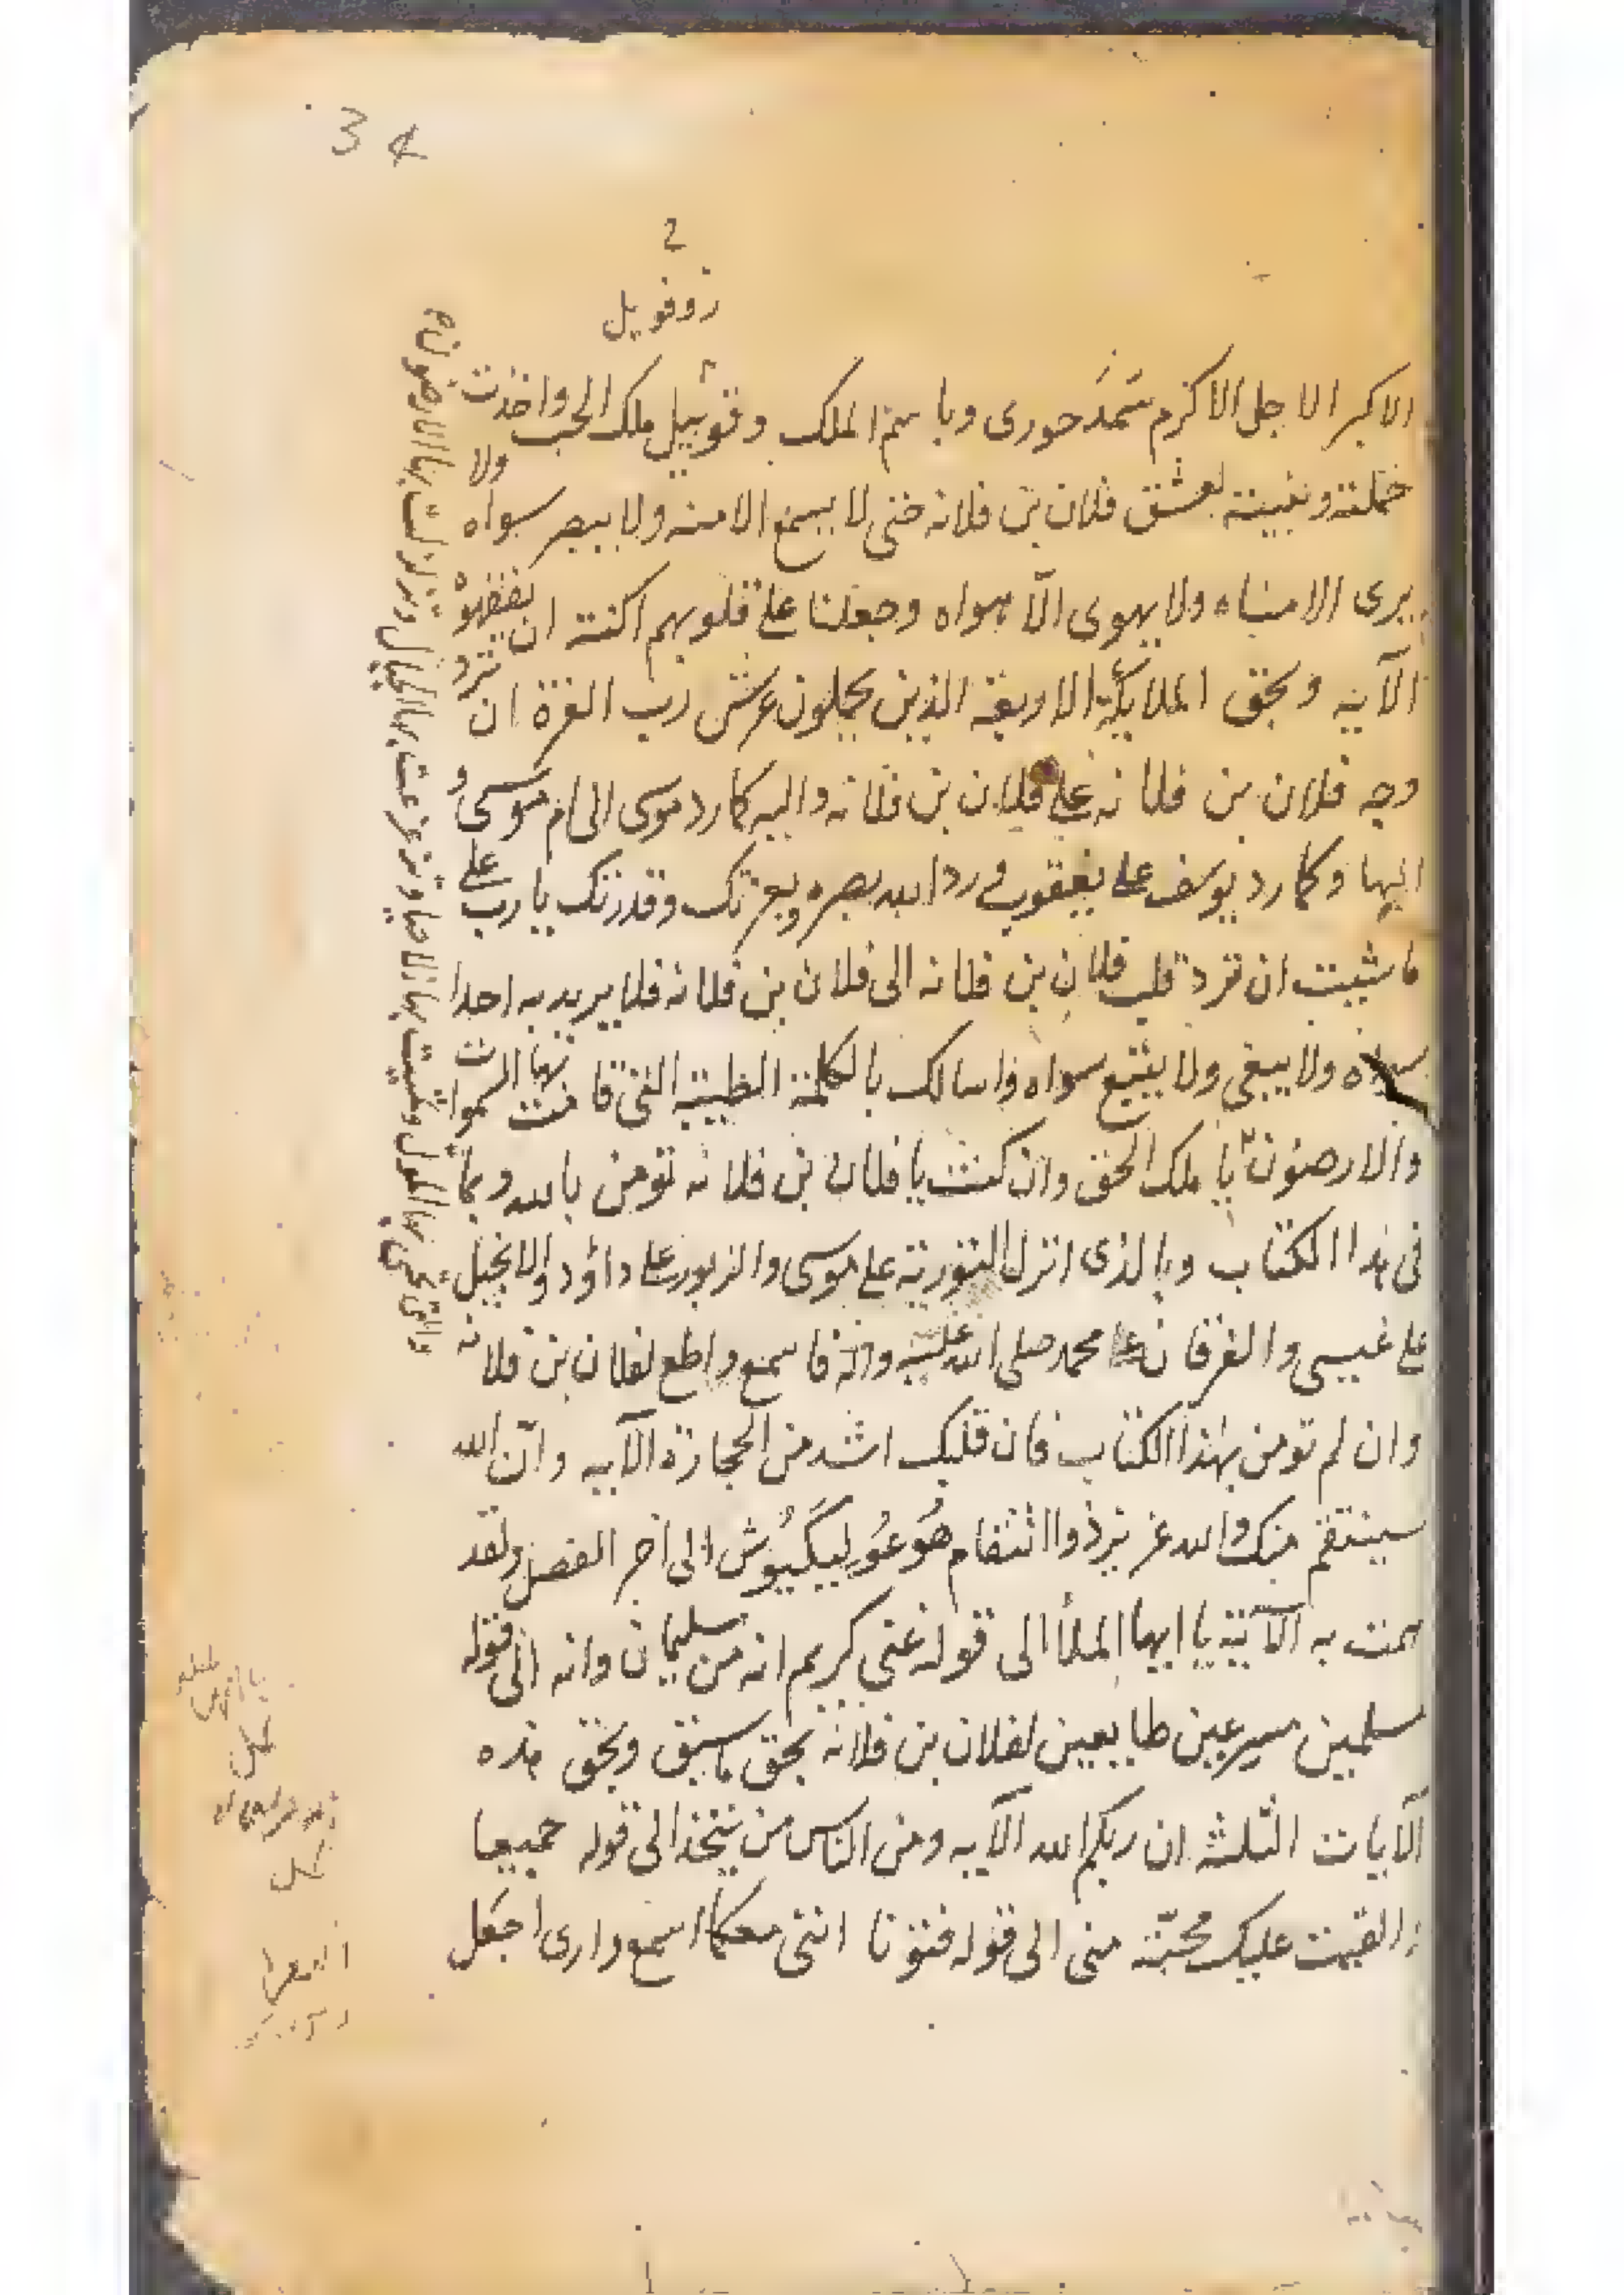 34
٢
زوفویل
الاکبر الاجل الاکرم شَمَخَحوری وباسم الملک وقوئبیل ملک الحب واخذت
خملته وبغیبته بعشق فلان بن فلانه حتی لا یسمع الا منه ولا یبصر سواه ولا
یری الا مناه ولا یهوی الّا هواه وجعلنا علی قلوبهم اکنة ان یفقهوه
الآیه وبحق الملایکة الاربعة الذین یحملون عرش رب العزة ان ترد
وجه فلان بن فلانه علی فلان بن فلانه والیه کما رد موسی الی ام موسی و
الیها وکما رد یوسف علی یعقوب ورد الله بصره وبعزتک وقدرتک یا رب علی
ما شیت ان ترد قلب فلان بن فلانه الی فلان بن فلانه فلا یرید به احدا
سواه ولا یبغی ولا یتبع سواه واسالک بالکلمة الطیبة التی قامت بها السموات
والارضون یا ملک الحق وان کنت یا فلان بن فلانه تومن بالله وبما
فی هذا الکتاب وبالذی انزل التوریة علی موسی والزبور علی داؤد والانجیل
علی عیسی والفرقان علی محمد صلی الله علیه واله فاسمع واطع لفلان بن فلانه
وان لم تومن بهذا الکتاب فان قلبک اشد من الحجارة الآیه وان الله
سینتقم منک والله عزیز ذو انتقام هَوعُورلیکَیُوش الی آخر الفصل ولقد
همت به الآیة یا ایها الملأ الی قوله غنی کریم انه من سلیمان وانه الی قوله
مسلمین مسرعین طایعین لفلان بن فلانه بحق ما سبق وبحق هذه
الآیات الثلثه ان ربکم الله الآیه ومن الناس من یتخذ الی قوله جمیعا
والقیت علیک محبّة منی الی قوله فتونا اننی معکما اسمع واری اجعل